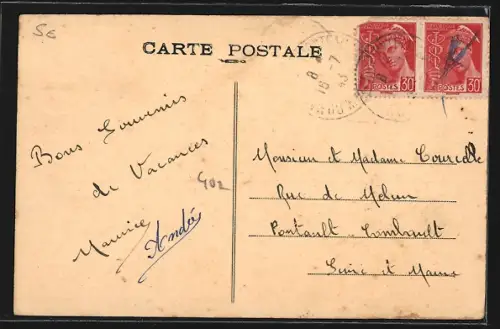 5€
CARTE POSTALE
POSTES 30
POSTES 30
18-7
43
Bons Souvenirs
de Vacances
402
Maurice André
Monsieur et Madame
Rue de Melun
Pontault-Combault
Seine et Marne